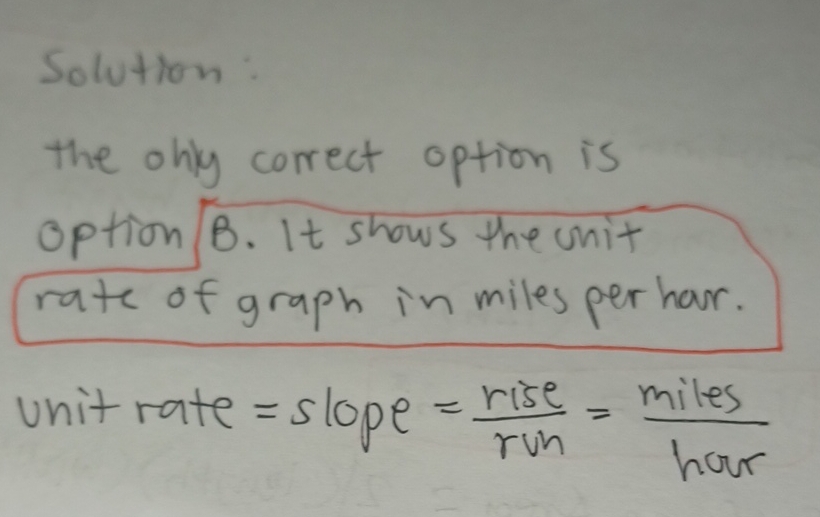 Solution:
the only correct option is
option B. It shows the unit
rate of graph in miles per hour.
unit rate = slope = rise/run = miles/hour